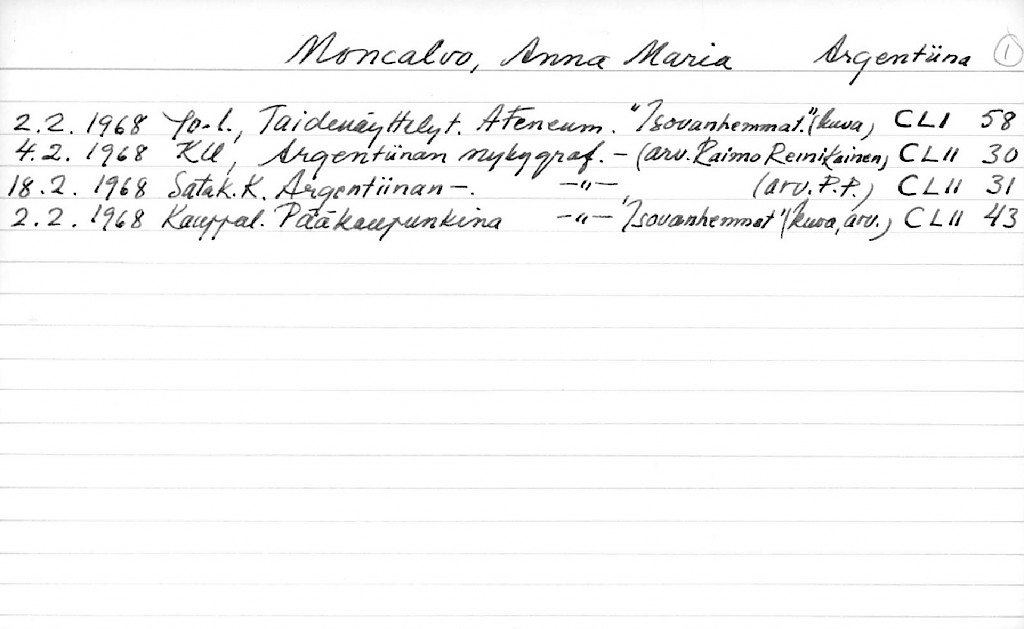 Moncalvo, Anna Maria Argentiina 1
2.2. 1968 Yo-l., Taidenäyttelyt. Ateneum. "Isovanhemmat." (kuva) CLI 58
4.2. 1968 KU, Argentiinan nykygraf. - (arv. Raimo Reinikainen) CLII 30
18.2. 1968 Satak.K. Argentiinan -. -"- (arv. P.P.) CLII 31
2.2. 1968 Kauppal. Pääkaupunkina -"- "Isovanhemmat" (kuva, arv.) CLII 43